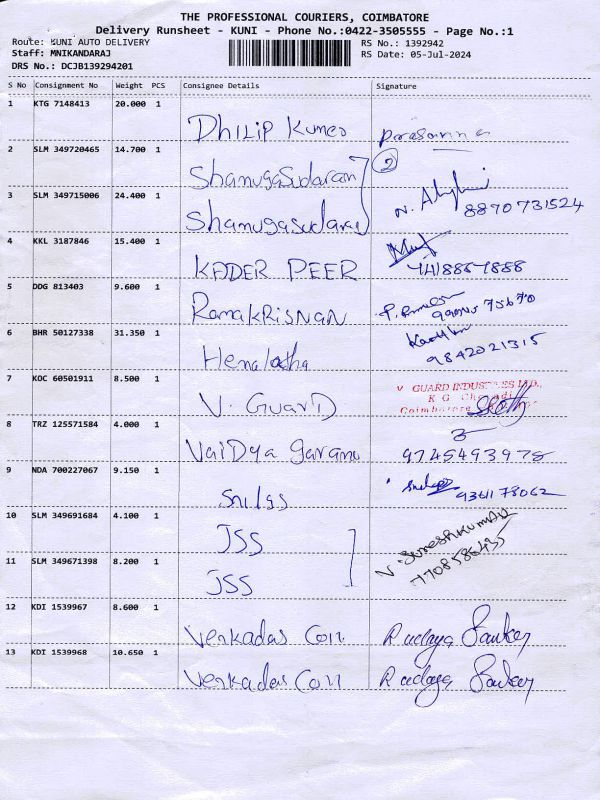 THE PROFESSIONAL COURIERS, COIMBATORE
Delivery Runsheet - KUNI - Phone No.:0422-3505555 - Page No.:1
Route: KUNI AUTO DELIVERY
RS No.: 1392942
Staff: MNIKANDARAJ
RS Date: 05-Jul-2024
DRS No.: DCJB139294201
S No Consignment No Weight PCS Consignee Details Signature
1 KTG 7148413 20.000 1 Dhilip Kumer
2 SLM 349720465 14.700 1 Shamugasudaram 2
3 SLM 349715006 24.400 1 Shamugasudaraj N. 8870731524
4 KKL 3187846 15.400 1 KADER PEER
5 DDG 813403 9.600 1 RamaKRISNAN
6 BHR 50127338 31.350 1 Hemalatha 9842021315
7 KOC 60501911 8.500 1 V. GuarD V GUARD INDUSTRIES LTD.,
K G
Coimbatore
8 TRZ 125571584 4.000 1 VaiDya garama 9745493978
9 NDA 700227067 9.150 1
10 SLM 349691684 4.100 1 JSS N. SureshKumar
11 SLM 349671398 8.200 1 JSS 7708586435
12 KDI 1539967 8.600 1 Venkadas Coil R udaya Sankar
13 KDI 1539968 10.650 1 Venkadas Coil R udaya Sankar